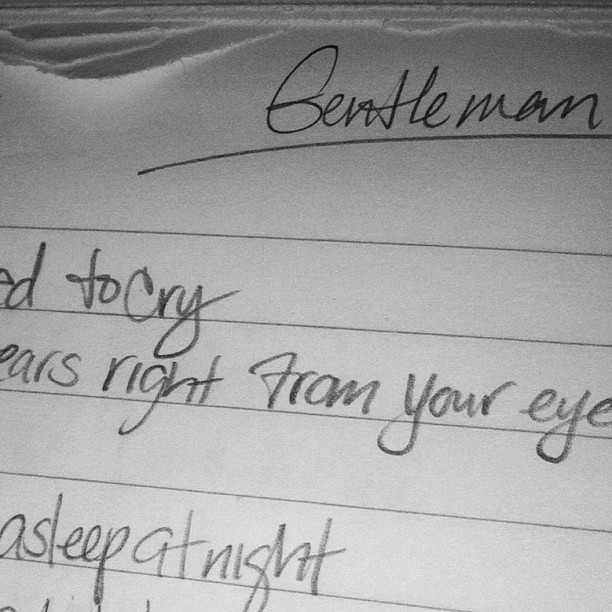 Gentleman
ed to cry
ears right from your eye
asleep at night